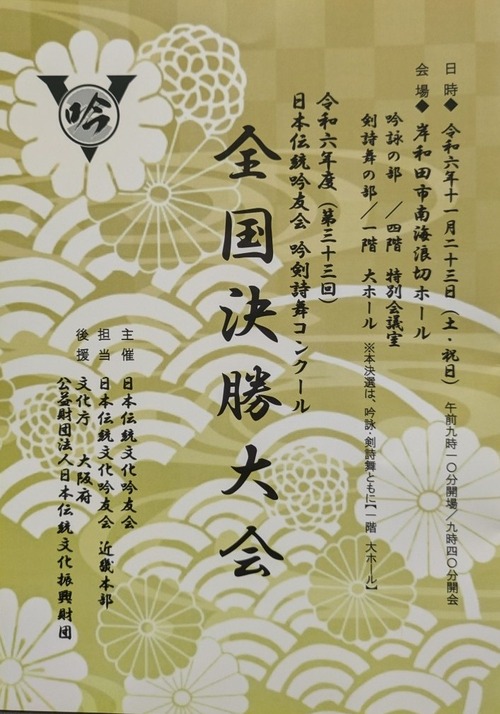 日時◆ 令和六年十一月二十三日（土・祝日） 午前九時一〇分開場／九時四〇分開会
会場◆ 岸和田市南海浪切ホール
吟詠の部 ／四階 特別会議室
剣詩舞の部／一階 大ホール ※本決選は、吟詠・剣詩舞ともに【一階 大ホール】
令和六年度（第三十三回）
日本伝統吟友会 吟剣詩舞コンクール
全国決勝大会
主催 日本伝統文化吟友会
担当 日本伝統文化吟友会 近畿本部
後援 文化庁 大阪府
公益財団法人日本伝統文化振興財団
吟